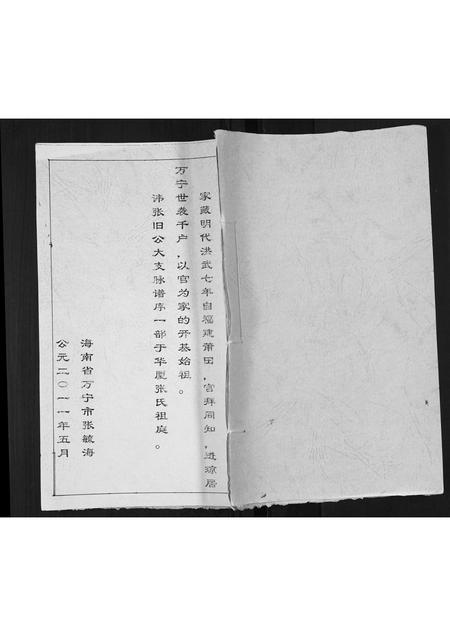 家藏明代洪武七年自福建莆田，宫拜同知，进琼居
万宁世袭千户，以官为家的开基始祖。
讳张旧公大支脉谱序一部于华夏张氏祖庭。
海南省万宁市张毓海
公元二〇一一年五月